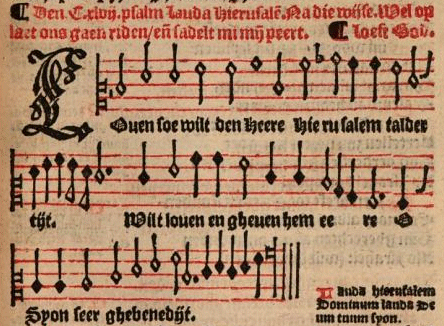 ¶ Den C.xlvij. psalm Lauda hierusalē. Na die wijse. Wel op
laet ons gaen riden/ eñ sadelt mi mij peert. ¶ Looft God.
L
Ouen soe wilt den Heere Hie ru salem talder
tijt. Wilt louen en gheuen hem ee re O
Syon seer ghebenedijt.
Lauda hierusalem
Dominum lauda De
um tuum syon.